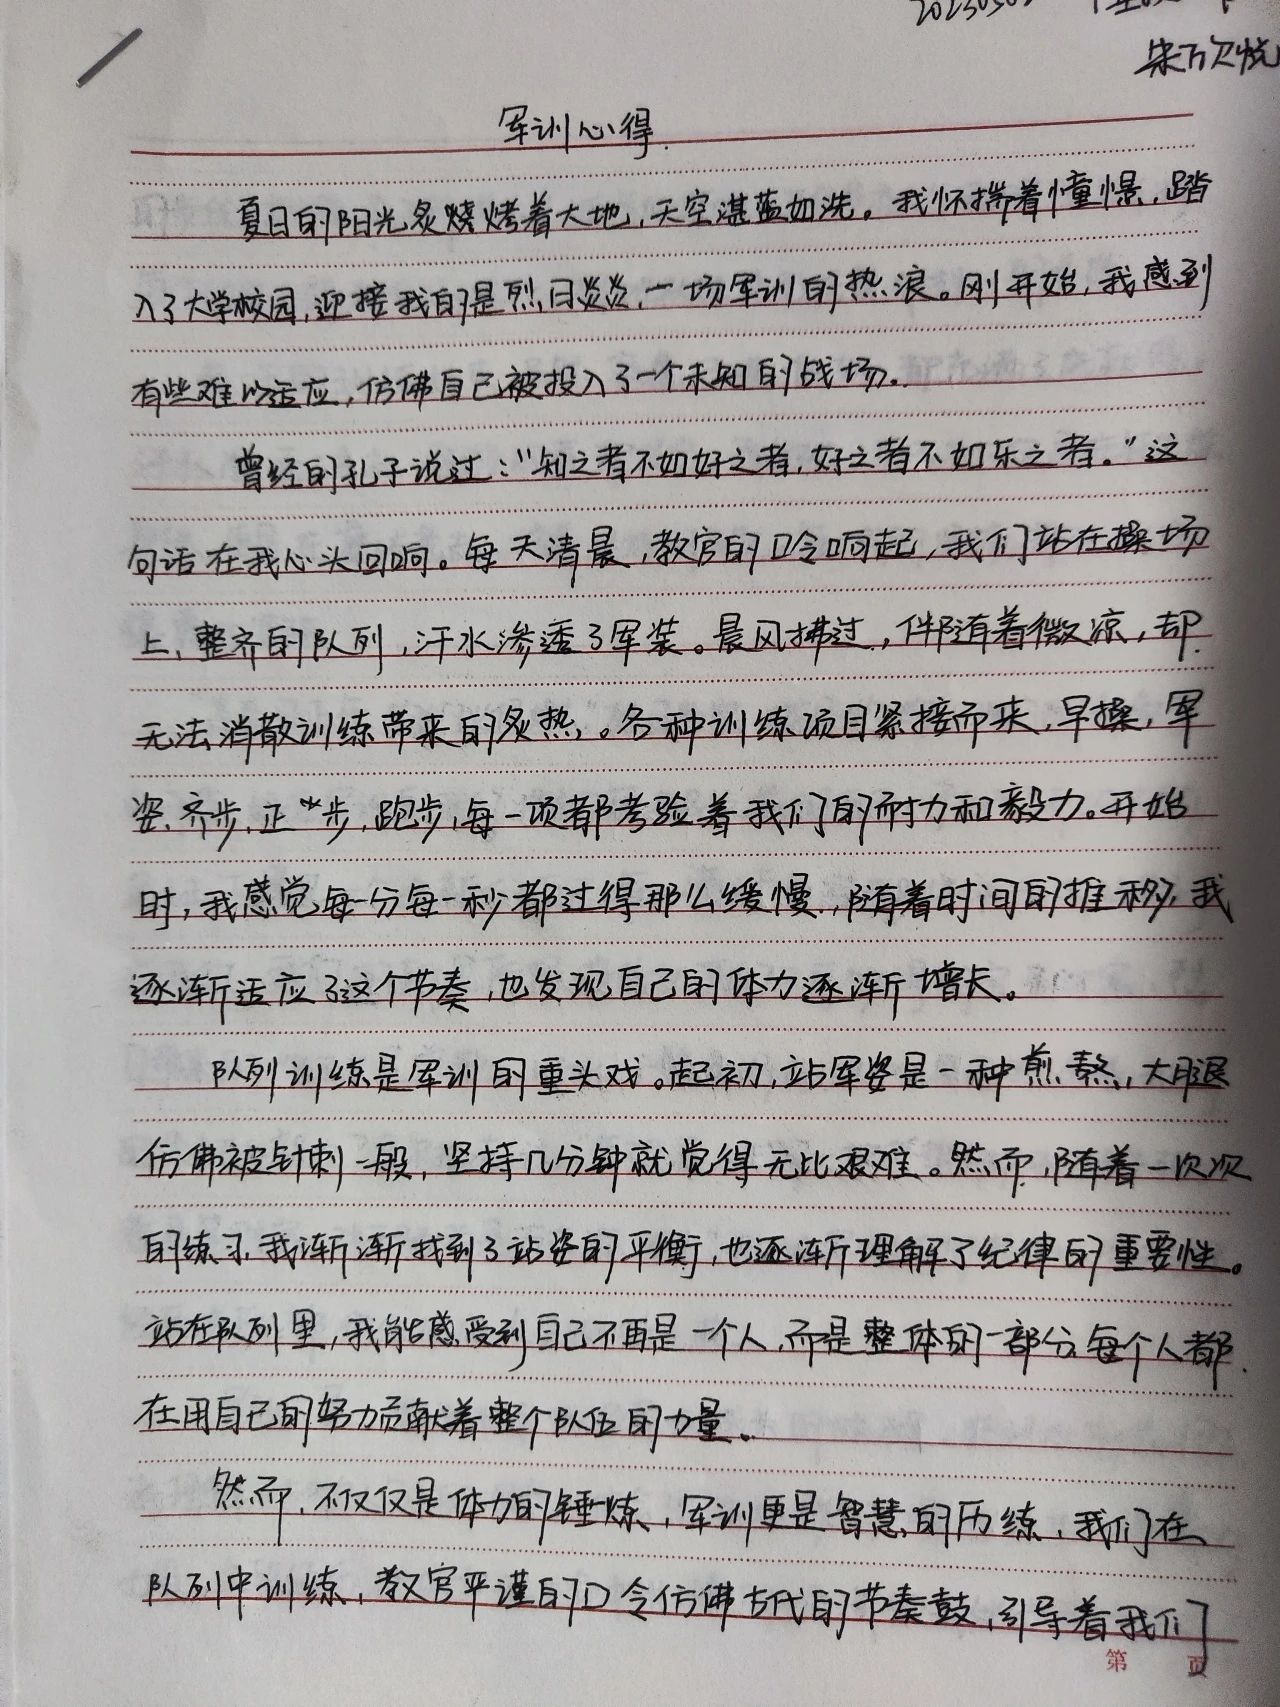 军训心得
夏日的阳光炙烧烤着大地,天空湛蓝如洗。我怀揣着憧憬,踏
入了大学校园,迎接我的是烈日炎炎,一场军训的热浪。刚开始,我感到
有些难以适应,仿佛自己被投入了一个未知的战场。
曾经的孔子说过:“知之者不如好之者,好之者不如乐之者。”这
句话在我心头回响。每天清晨,教官的口令响起,我们站在操场
上,整齐的队列,汗水渗透了军装。晨风拂过,伴随着微凉,却
无法消散训练带来的炙热。各种训练项目紧接而来,早操,军
姿、齐步,正步,跑步,每一项都考验着我们的耐力和毅力。开始
时,我感觉每一分每一秒都过得那么缓慢,随着时间的推移,我
逐渐适应了这个节奏,也发现自己的体力逐渐增长。
队列训练是军训的重头戏。起初,站军姿是一种煎熬,大腿
仿佛被针刺一般,坚持几分钟就觉得无比艰难。然而,随着一次次
的练习,我渐渐找到了站姿的平衡,也逐渐理解了纪律的重要性。
站在队列里,我能感受到自己不再是一个人,而是整体的一部分,每个人都
在用自己的努力贡献着整个队伍的力量。
然而,不仅仅是体力的锤炼,军训更是智慧的历练,我们在
队列中训练,教官严谨的口令仿佛古代的节奏鼓,引导着我们
第 页